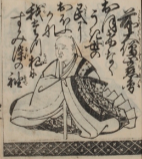 前大僧正慈円
おほけなく
うき世の
民に
おほふ
かな
わがたつ杣に
すみ染の袖